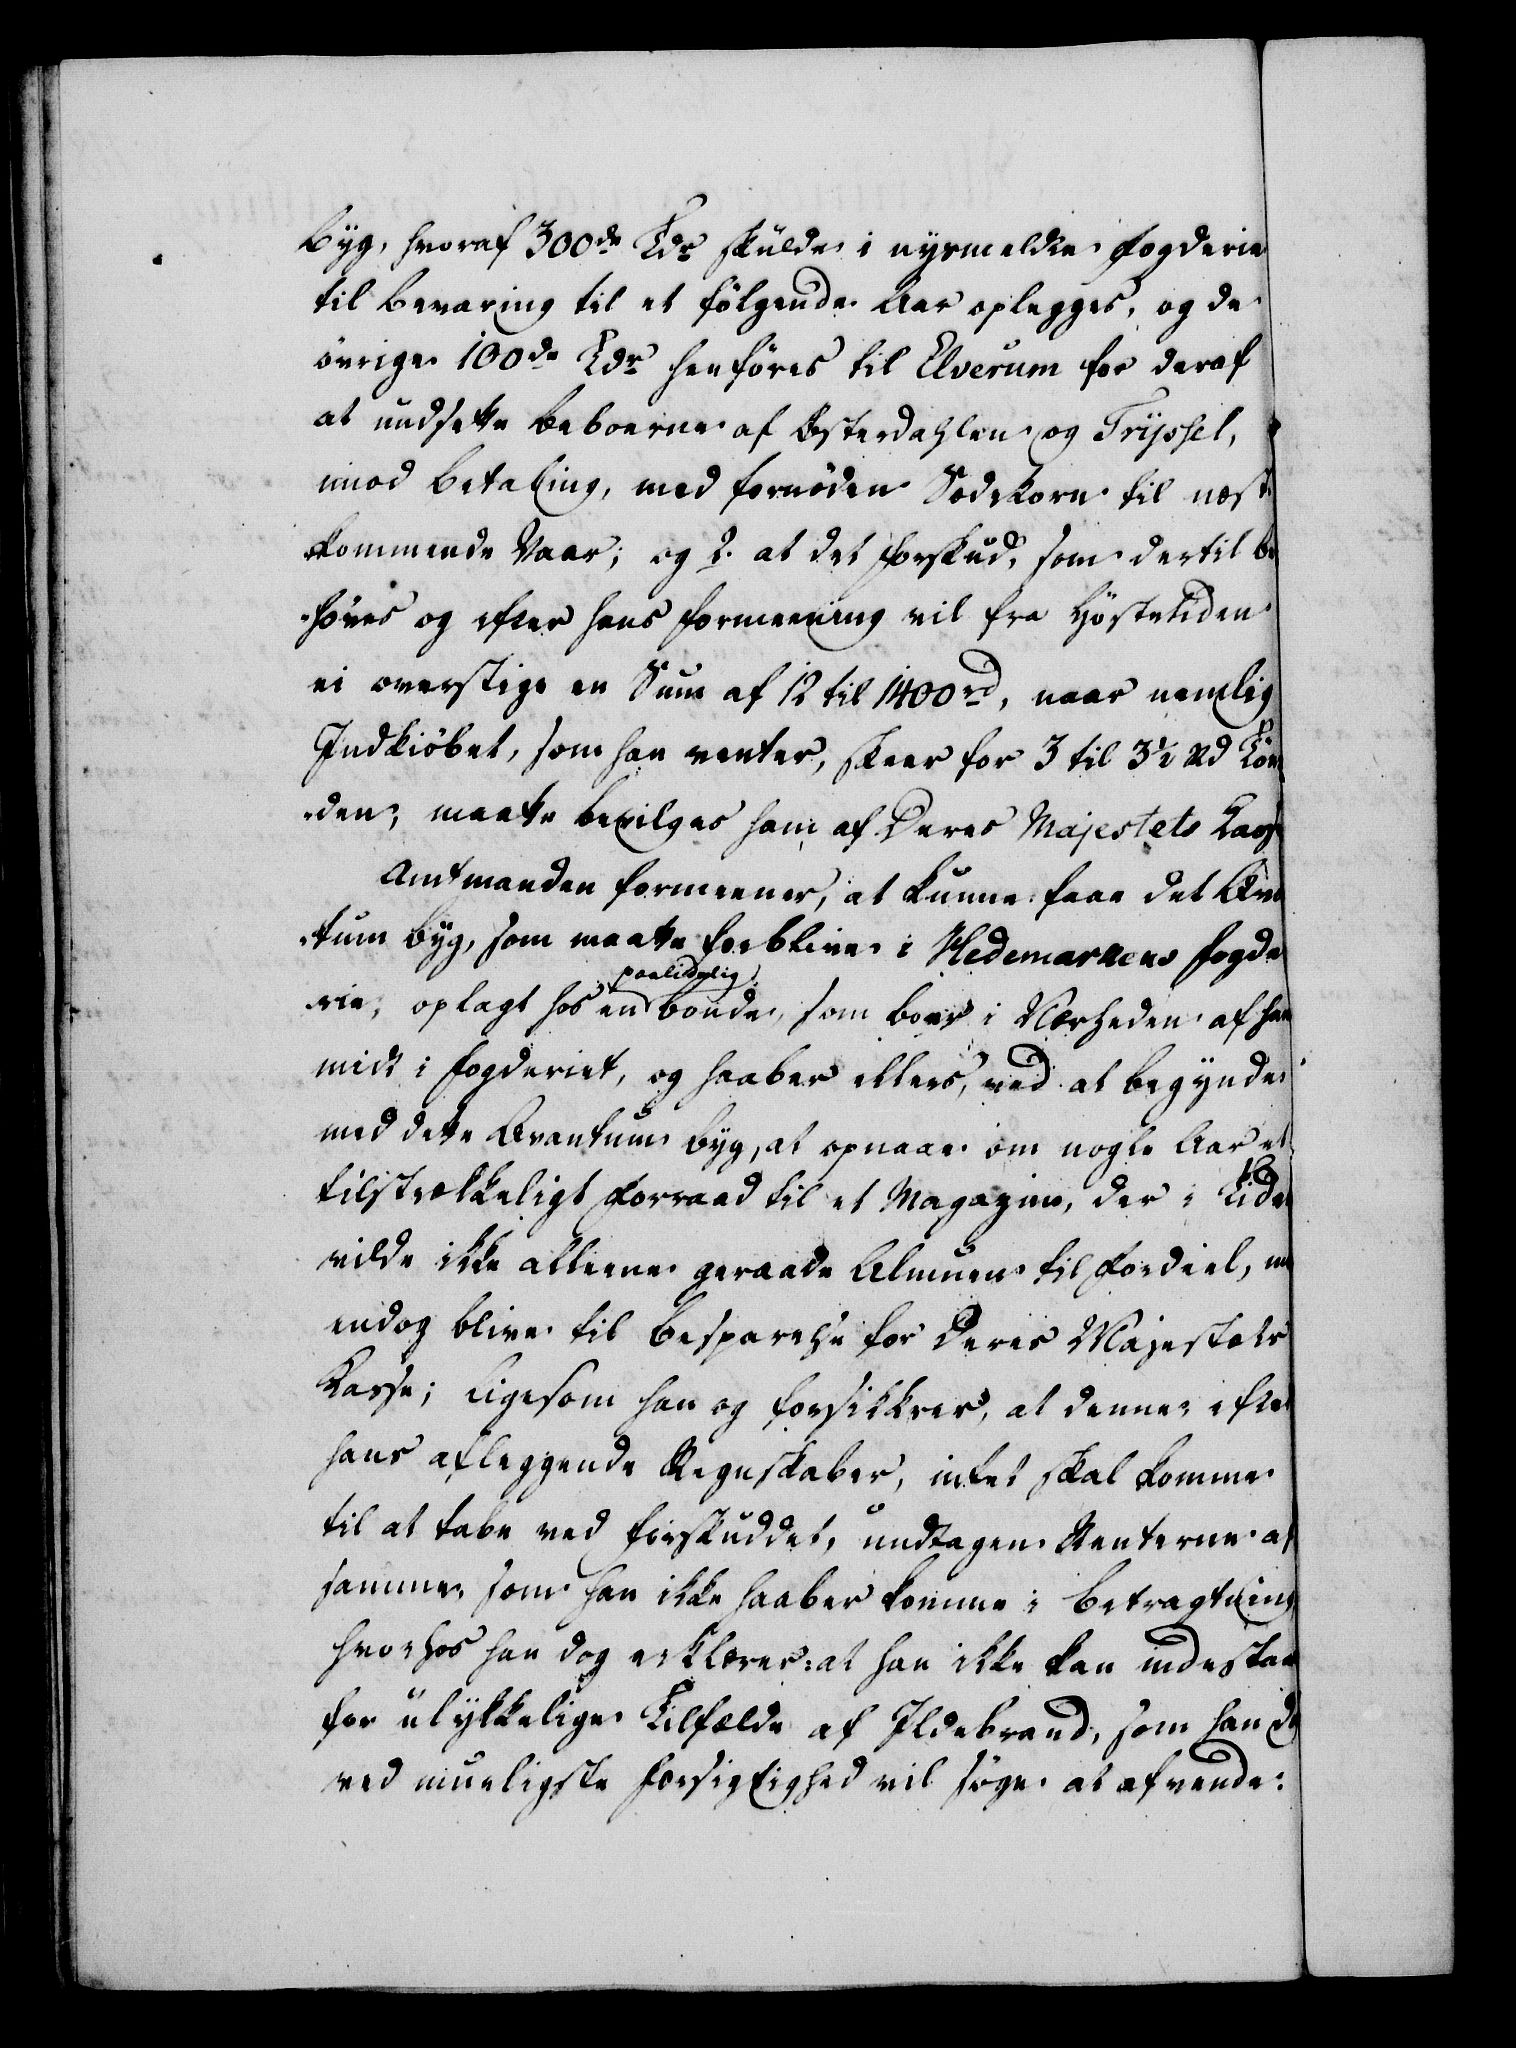 Byg, hvoraf 300de Tdr skulde i nysmeldte Fogderie
til bevaring til et følgende Aar oplegges, og de
øvrige 100de Tdr henføres til Elverum for deraf
at undsette beboerne af Østerdahlen og Trysshel,
imod betaling, med fornøden Sædekorn til næst
kommende Vaar; og 2. at det Forskud, som dertil be
høves og efter hans formeening vil fra Høstetiden
ei overstige en Sum af 12 til 1400 rd, naar nemlig
Indkiøbet, som han venter, skeer for 3 til 3½ Rd Tøn
den, maatte bevilges ham af Deres Majestets Casse
Amtmanden formeener, at kunne faae det Qvan
tum byg, som maatte forblive i Hedemarkens Fogde
rie, oplagt hos en paalidelig bonde, som boer i Nærheden af ham
midt i Fogderiet, og haaber ellers, ved at begynde
med dette Qvantum byg, at opnaae om nogle Aar et
tilstrækkeligt Forraad til et Magazin, der i Tiden
vilde ikke alleene geraade Almuen til Fordeel, men
endog blive til besparelse for Deres Majestæts
Casse; ligesom han og forsikkrer, at denne, efter
hans aflæggende Regnskaber, intet skal komme
til at tabe ved Forskuddet, undtagen Renterne af
samme, som han ikke haaber komme i betragtning
hvorhos han dog erklærer: at han ikke kan indestaae
for ulykkelige Tilfælde af Ildebrand, som han dog
ved mueligste Forsigtighed vil søge at afvende.